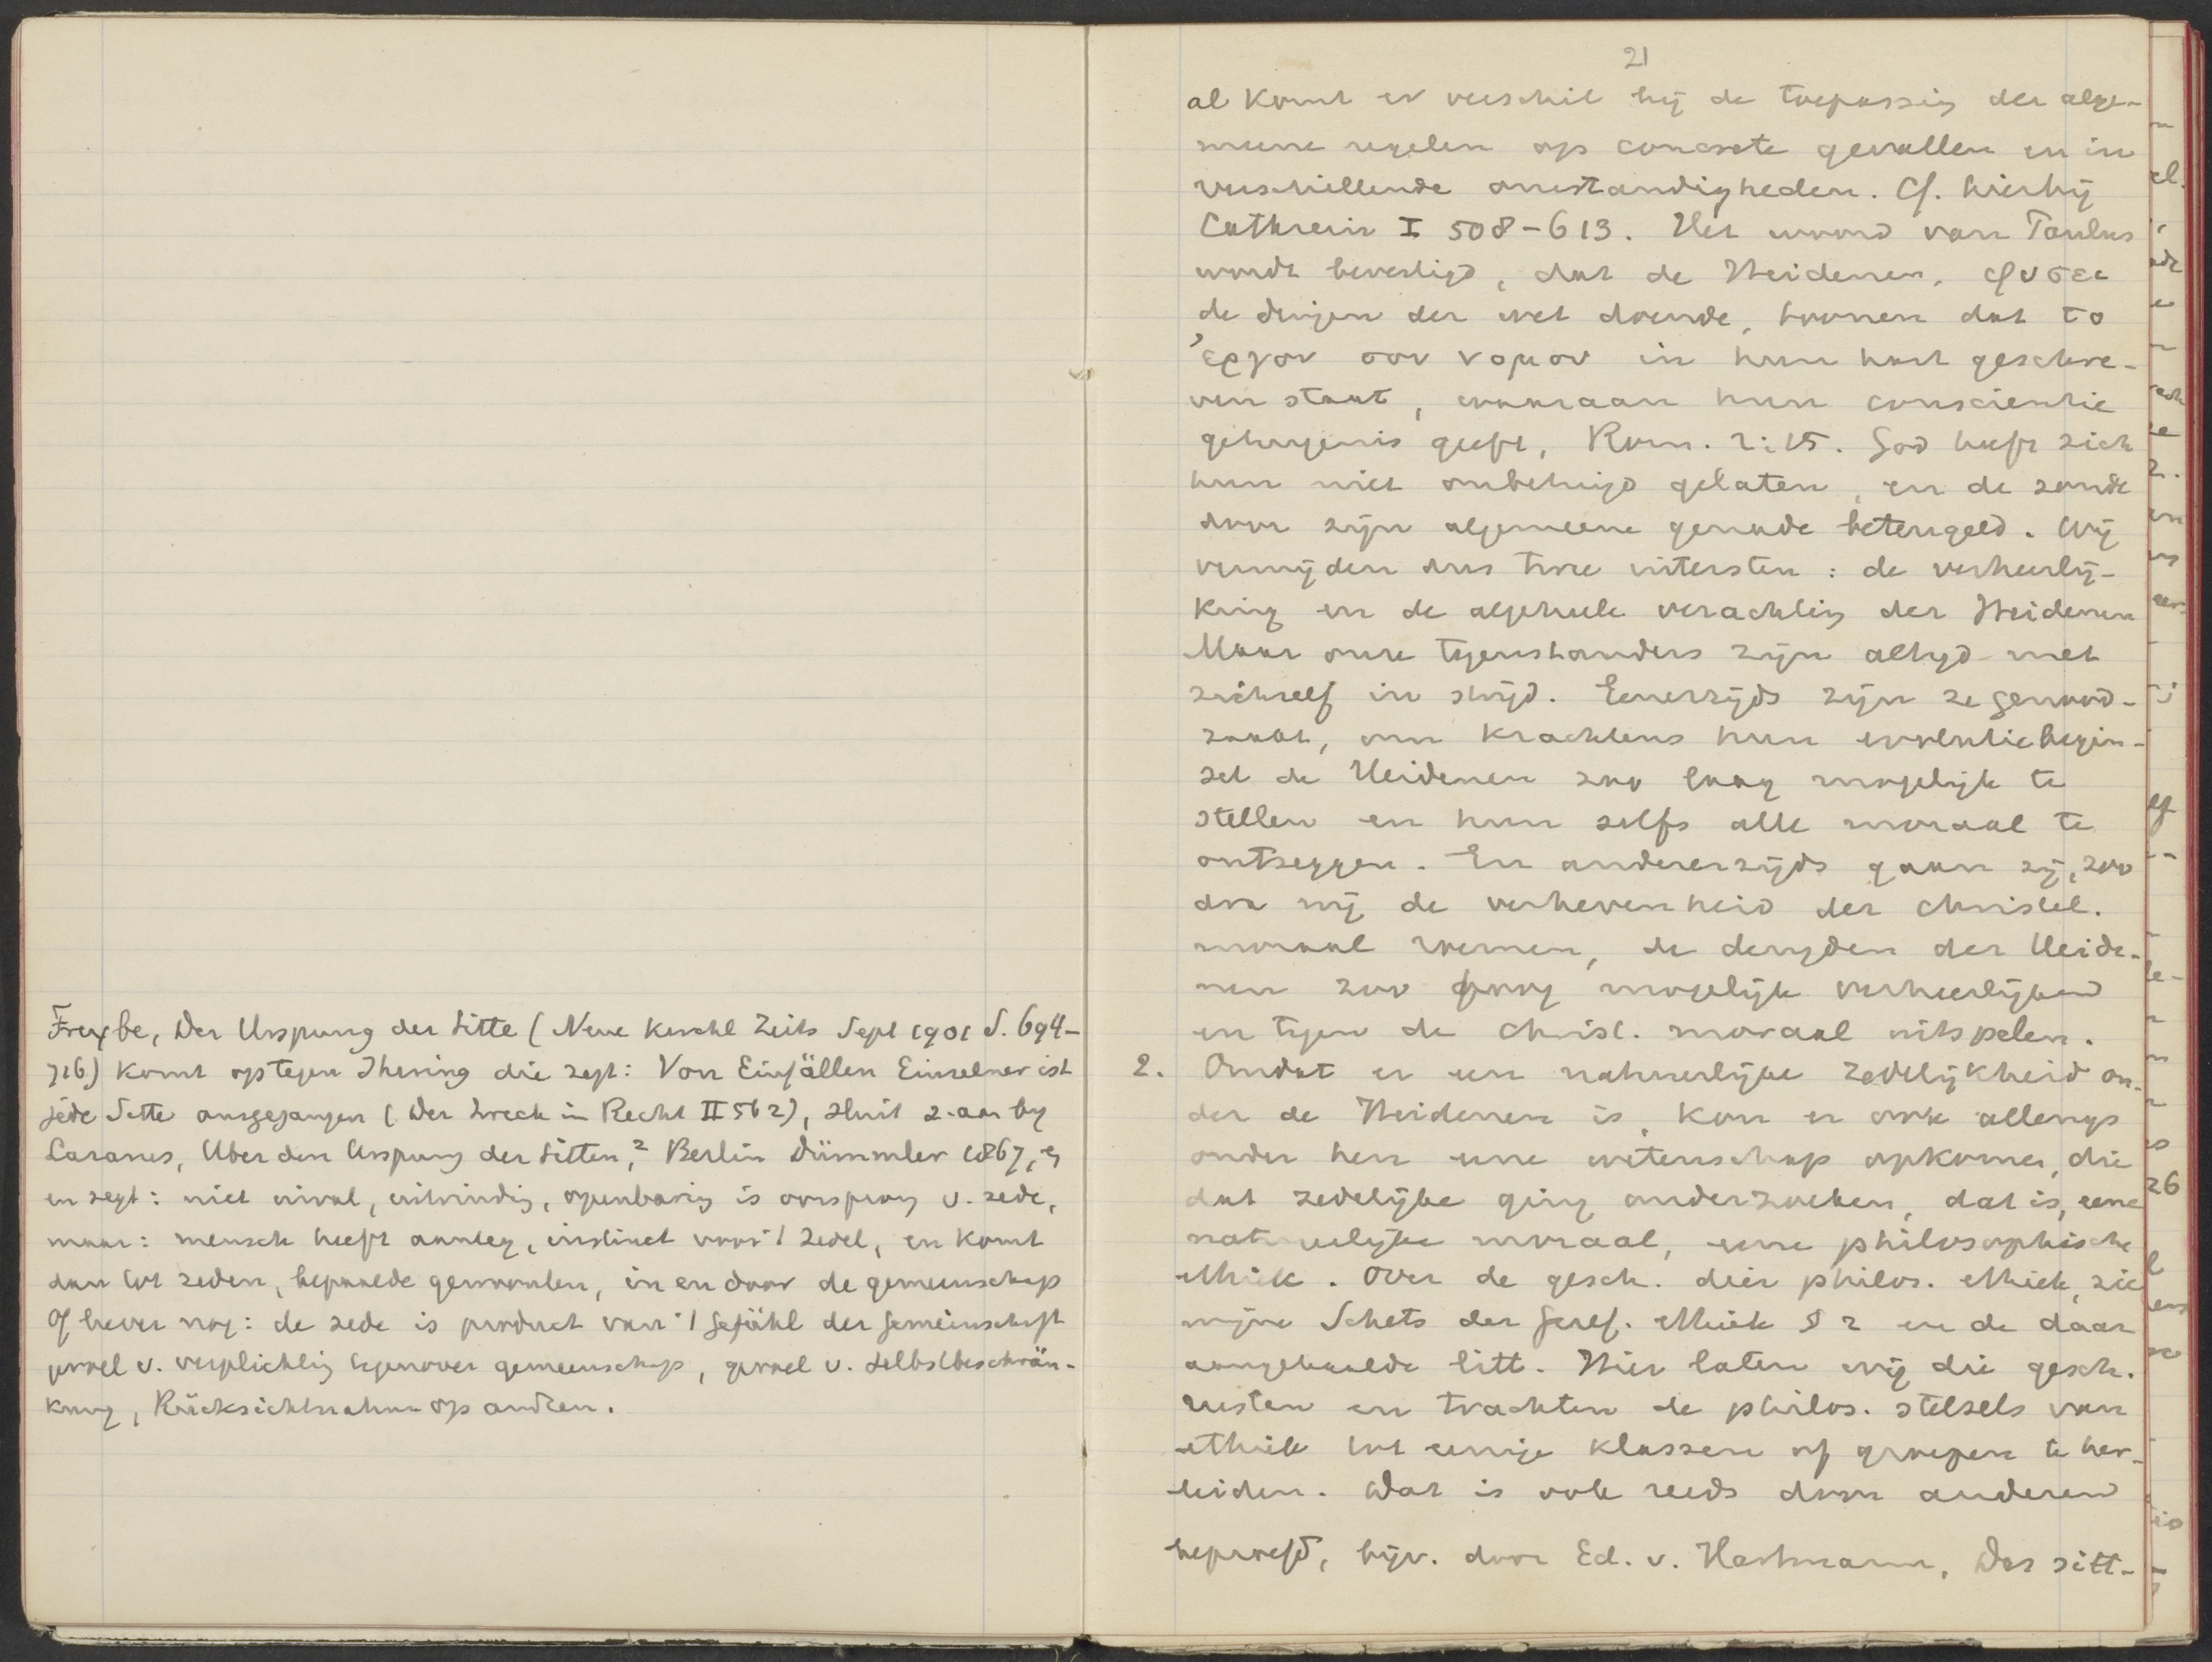 Freybe, Der Urspung der Sitte (Neue Kirchl Zeits Sept 1901 S. 694-
716) komt op tegen Ihering die zegt: Von Einfällen Einzelner ist
jede Sitte ausgegangen (Der Zweck im Recht II 562), sluit z. aan by
Lazarus, Uber den Urspung der Sitten,² Berlin Dümmler 1867,
en zegt: niet inval, uitvinding, openbaring is oorsprong v. zede,
maar: mensch heeft aanleg, instinct voor 't zedel, en komt
dan tot zeden, bepaalde gewoonten, in en door de gemeenschap
Of liever nog: de zede is product van 't Gefühl der Gemeinschaft
gevoel v. verplichting tegenover gemeenschap, gevoel v. Selbstbeschrän-
kung, Rücksichtnahme op andren.
21
al komt er verschil bij de toepassing der alge-
meene regelen op concrete gevallen en in
verschillende omstandigheden. Cf. hierbij
Cathrein I 508-613. Het woord van Paulus
wordt bevestigd, dat de Heidenen, φυσει
de dingen der wet doende, toonen dat το
ἐργον του νομου in hun hart geschre-
ven staat, waaraan hun conscientie
getuigenis geeft, Rom. 2:15. God heeft zich
hun niet onbetuigd gelaten, en de zonde
door zijn algemeene genade beteugeld. Wij
vermijden dus twee uitersten: de verheerlij-
king en de algeheele verachting der Heidenen
Maar onze tegenstanders zijn altijd met
zichzelf in strijd. Eenerzijds zijn ze genood-
zaakt, om krachtens hun evolutiebegin-
sel de Heidenen zoo laag mogelijk te
stellen en hun zelfs alle moraal te
ontzeggen. En andererzijds gaan zij, zoo
dra wij de verhevenheid der christel.
moraal roemen, de deugden der Heide-
nen zoo hoog mogelijk verheerlijken
en tegen de christ. moraal uitspelen.
2. Omdat er een natuurlijke zedelijkheid on-
der de Heidenen is, kon er ook allengs
onder hen eene wetenschap opkomen, die
dat zedelijke ging onderzoeken, dat is, eene
natuurlijke moraal, eene philosophische
ethiek. Over de gesch. dier philos. ethiek, zie
mijne Schets der Geref. Ethiek § 2 en de daar
aangehaalde litt. Hier laten wij die gesch.
rusten en trachten de philos. stelsels van
ethiek tot eenige klassen of groepen te her-
leiden. Dat is ook reeds door anderen
beproefd, bijv. door Ed. v. Hartmann, Das sitt-